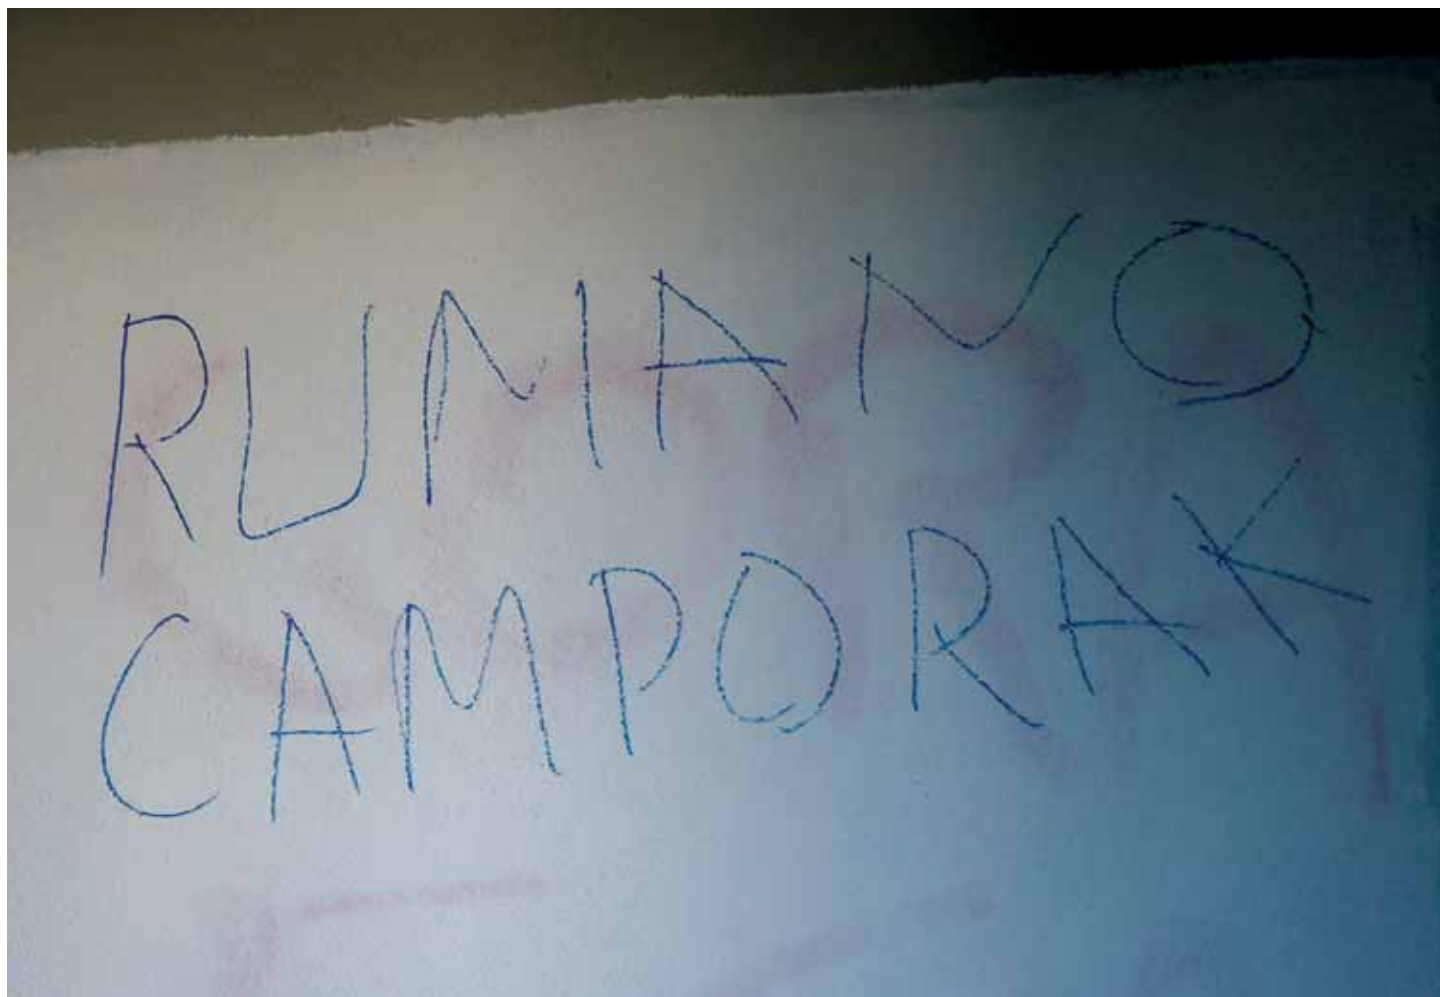 RUMANO
CAMPORAK